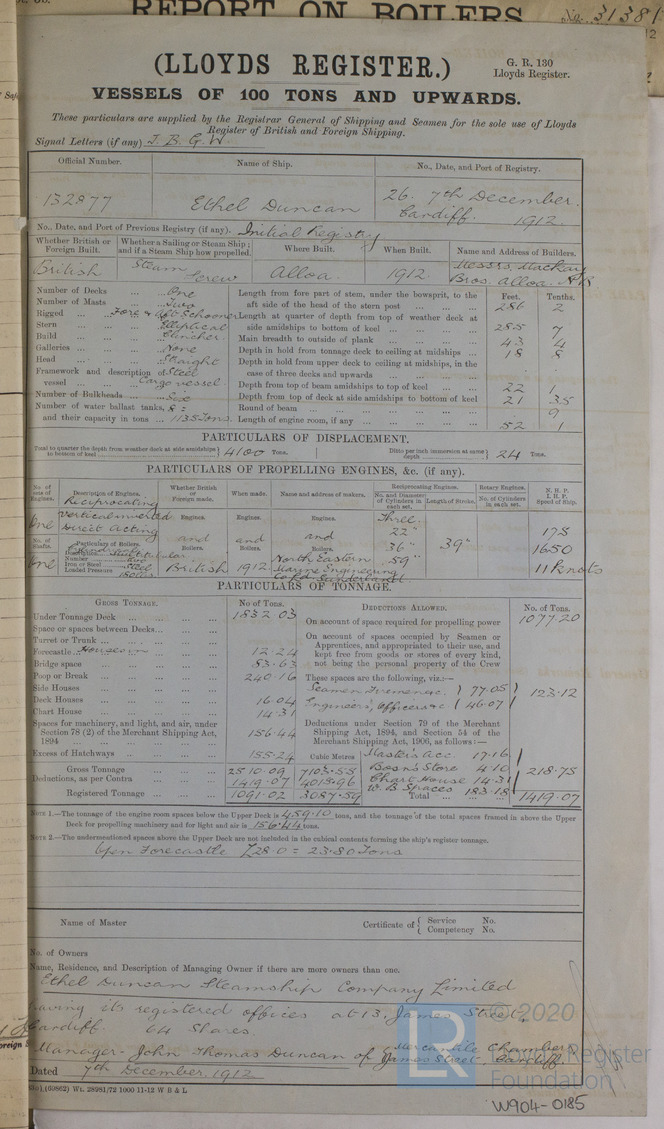 REPORT ON BOILERS. No. 31381
(LLOYDS REGISTER.)
G. R. 130
Lloyds Register.
VESSELS OF 100 TONS AND UPWARDS.
These particulars are supplied by the Registrar General of Shipping and Seamen for the sole use of Lloyds
Register of British and Foreign Shipping.
Signal Letters (if any) J. B. G. W.
Official Number. Name of Ship. No., Date, and Port of Registry.
132877 Ethel Duncan 26. 7th December.
Cardiff. 1912.
No., Date, and Port of Previous Registry (if any). Initial Registry
Whether British or Foreign Built. Whether a Sailing or Steam Ship; and if a Steam Ship how propelled. Where Built. When Built. Name and Address of Builders.
British Steam Screw Alloa. 1912. Messrs. Mackay Bros. Alloa. N B
Number of Decks ... One
Number of Masts ... Two
Rigged ... Fore & Aft Schooner
Stern ... Elliptical
Build ... Clincher
Galleries ... None
Head ... Straight
Framework and description of vessel ... Steel Cargo vessel
Number of Bulkheads ... Six
Number of water ballast tanks, 8 =
and their capacity in tons ... 1135 Tons.
Feet. Tenths.
Length from fore part of stem, under the bowsprit, to the aft side of the head of the stern post ... 286 2
Length at quarter of depth from top of weather deck at side amidships to bottom of keel ... 285 7
Main breadth to outside of plank ... 43 4
Depth in hold from tonnage deck to ceiling at midships ... 18 8
Depth in hold from upper deck to ceiling at midships, in the case of three decks and upwards ...
Depth from top of beam amidships to top of keel ... 22 1
Depth from top of deck at side amidships to bottom of keel 21 35
Round of beam ... 9
Length of engine room, if any ... 52 1
PARTICULARS OF DISPLACEMENT.
Total to quarter the depth from weather deck at side amidships to bottom of keel } 4100 Tons. Ditto per inch immersion at same depth } 24 Tons.
PARTICULARS OF PROPELLING ENGINES, &c. (if any).
No. of sets of Engines. Description of Engines. Whether British or Foreign made. When made. Name and address of makers. Reciprocating Engines. Rotary Engines. N. H. P. I. H. P. Speed of Ship.
No. and Diameter of Cylinders in each set. Length of Stroke. No. of Cylinders in each set.
One Reciprocating vertical inverted Direct Acting
Engines. and Boilers. Engines. and Boilers. Engines. and Boilers.
Three. 22" 36" 59" 39" 175 1650 11 Knots
No. of Shafts. Particulars of Boilers.
One
Number ... Two
Iron or Steel ... Steel
Loaded Pressure ... 180 lbs
British 1912 North Eastern Marine Engineering Co Ld. Sunderland.
PARTICULARS OF TONNAGE.
GROSS TONNAGE. No of Tons. DEDUCTIONS ALLOWED. No. of Tons.
Under Tonnage Deck ... 1832.03
Space or spaces between Decks...
Turret or Trunk ...
Forecastle ... 12.24
Bridge space ... 83.63
Poop or Break ... 240.16
Side Houses ...
Deck Houses ... 16.04
Chart House ... 14.31
Spaces for machinery, and light, and air, under Section 78 (2) of the Merchant Shipping Act, 1894 ... 156.44
Excess of Hatchways ... 155.24
Cubic Metres
Gross Tonnage ... 2510.09 7103.55
Deductions, as per Contra ... 1419.07 4015.96
Registered Tonnage ... 1091.02 3087.59
On account of space required for propelling power 1077.20
On account of spaces occupied by Seamen or Apprentices, and appropriated to their use, and kept free from goods or stores of every kind, not being the personal property of the Crew
These spaces are the following, viz.:—
Seamen Firemen &c. } 77.05 } 123.12
Engineers, Officers &c. { 46.07 }
Deductions under Section 79 of the Merchant Shipping Act, 1894, and Section 54 of the Merchant Shipping Act, 1906, as follows:—
Master's acc. 17.16
Bosn's Store 4.10 218.75
Chart House 14.31
W. B Spaces 183.18
Total ... 1419.07
NOTE 1.—The tonnage of the engine room spaces below the Upper Deck is 459.10 tons, and the tonnage of the total spaces framed in above the Upper
Deck for propelling machinery and for light and air is 156.44 tons.
NOTE 2.—The undermentioned spaces above the Upper Deck are not included in the cubical contents forming the ship's register tonnage.
Open Forecastle 28.0 = 23.80 Tons
Name of Master Certificate of { Service No. Competency No.
No. of Owners
Name, Residence, and Description of Managing Owner if there are more owners than one.
Ethel Duncan Steamship Company Limited
having its registered offices at 13, James Street,
Cardiff. 64 Shares.
Manager - John Thomas Duncan of Mercantile Chambers James Street, Cardiff.
Dated 7th December. 1912
(60862) Wt. 28981/72 1000 11-12 W B & L
LR © 2020
Lloyd's Register
Foundation
W904-0185